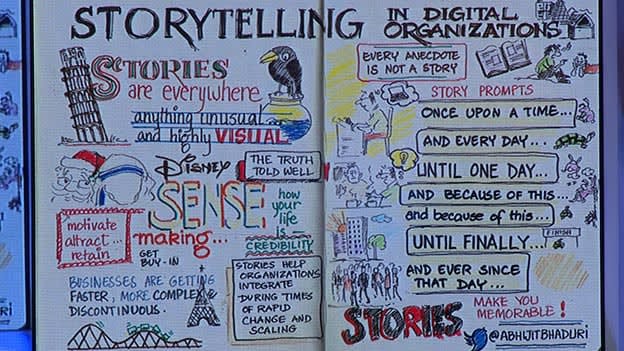 STORYTELLING IN DIGITAL
ORGANIZATIONS
STORIES
are everywhere
anything unusual
and highly VISUAL
DISNEY
THE TRUTH
TOLD WELL
SENSE
making...
how
your
life
is
CREDIBILITY
motivate
attract...
retain
GET
BUY-IN
BUSINESSES ARE GETTING
FASTER, MORE COMPLEX &
DISCONTINUOUS.
STORIES HELP
ORGANIZATIONS
INTEGRATE
DURING TIMES
OF RAPID
CHANGE AND
SCALING
EVERY ANECDOTE
IS NOT A STORY
STORY PROMPTS
ONCE UPON A TIME...
AND EVERY DAY...
UNTIL ONE DAY...
AND BECAUSE OF THIS...
and because of this...
UNTIL FINALLY...
FINISH
AND EVER SINCE
THAT DAY...
STORIES MAKE YOU
MEMORABLE!
@ABHIJITBHADURI